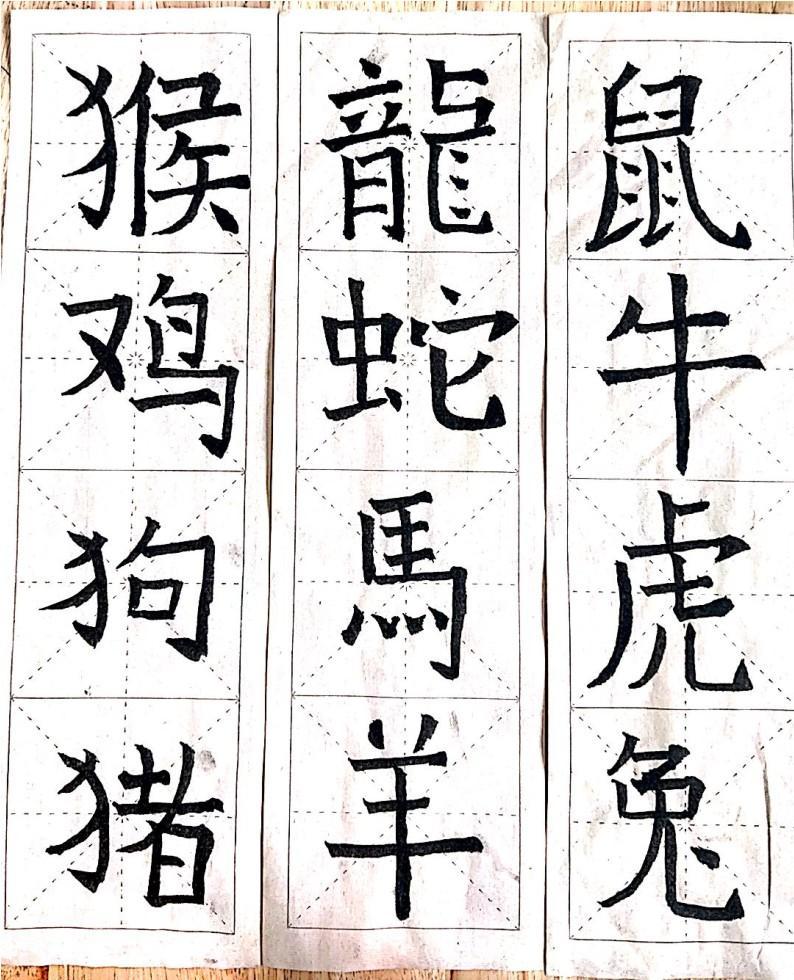 鼠牛虎兔
龍蛇馬羊
猴鸡狗猪